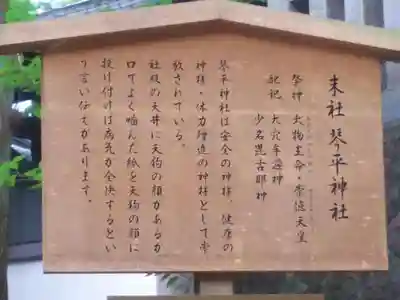 末社 琴平神社
祭神 大物主命・崇徳天皇
配祀 大穴牟遅神
少名毘古那神
琴平神社は安全の神様、健康の
神様・体力増進の神様として崇
敬されている。
社殿の天井に天狗の顔があるが
口でよく噛んだ紙を天狗の顔に
投げ付けれは病気が全快するとい
う言い伝えがあります。